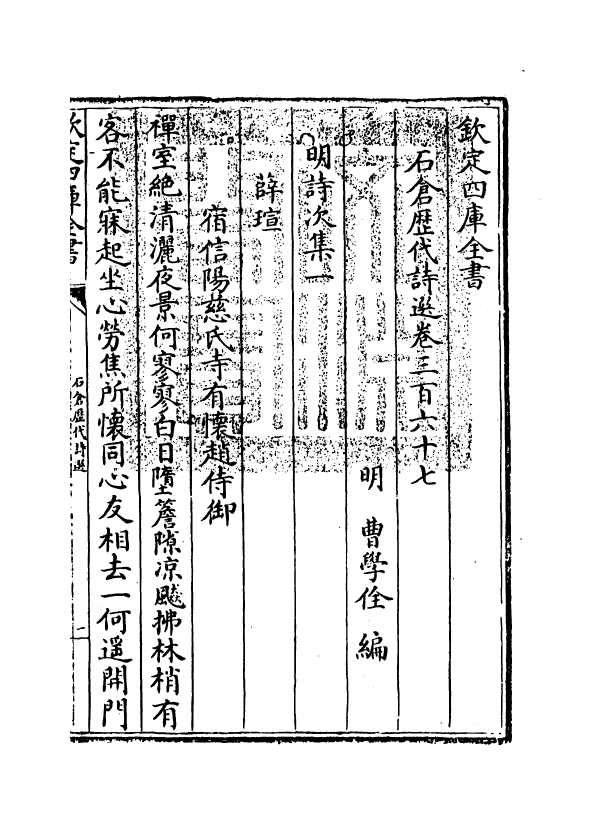 欽定四庫全書
石倉歴代詩選卷三百六十七
明 曹學佺 編
明詩次集一
薛瑄
宿信陽慈氏寺有懷趙侍御
禪室絶清灑夜景何寥寥白日墮簷隙凉飈拂林梢有
客不能寐起坐心勞焦所懷同心友相去一何遥開門
欽定四庫全書
石倉歴代詩選
一